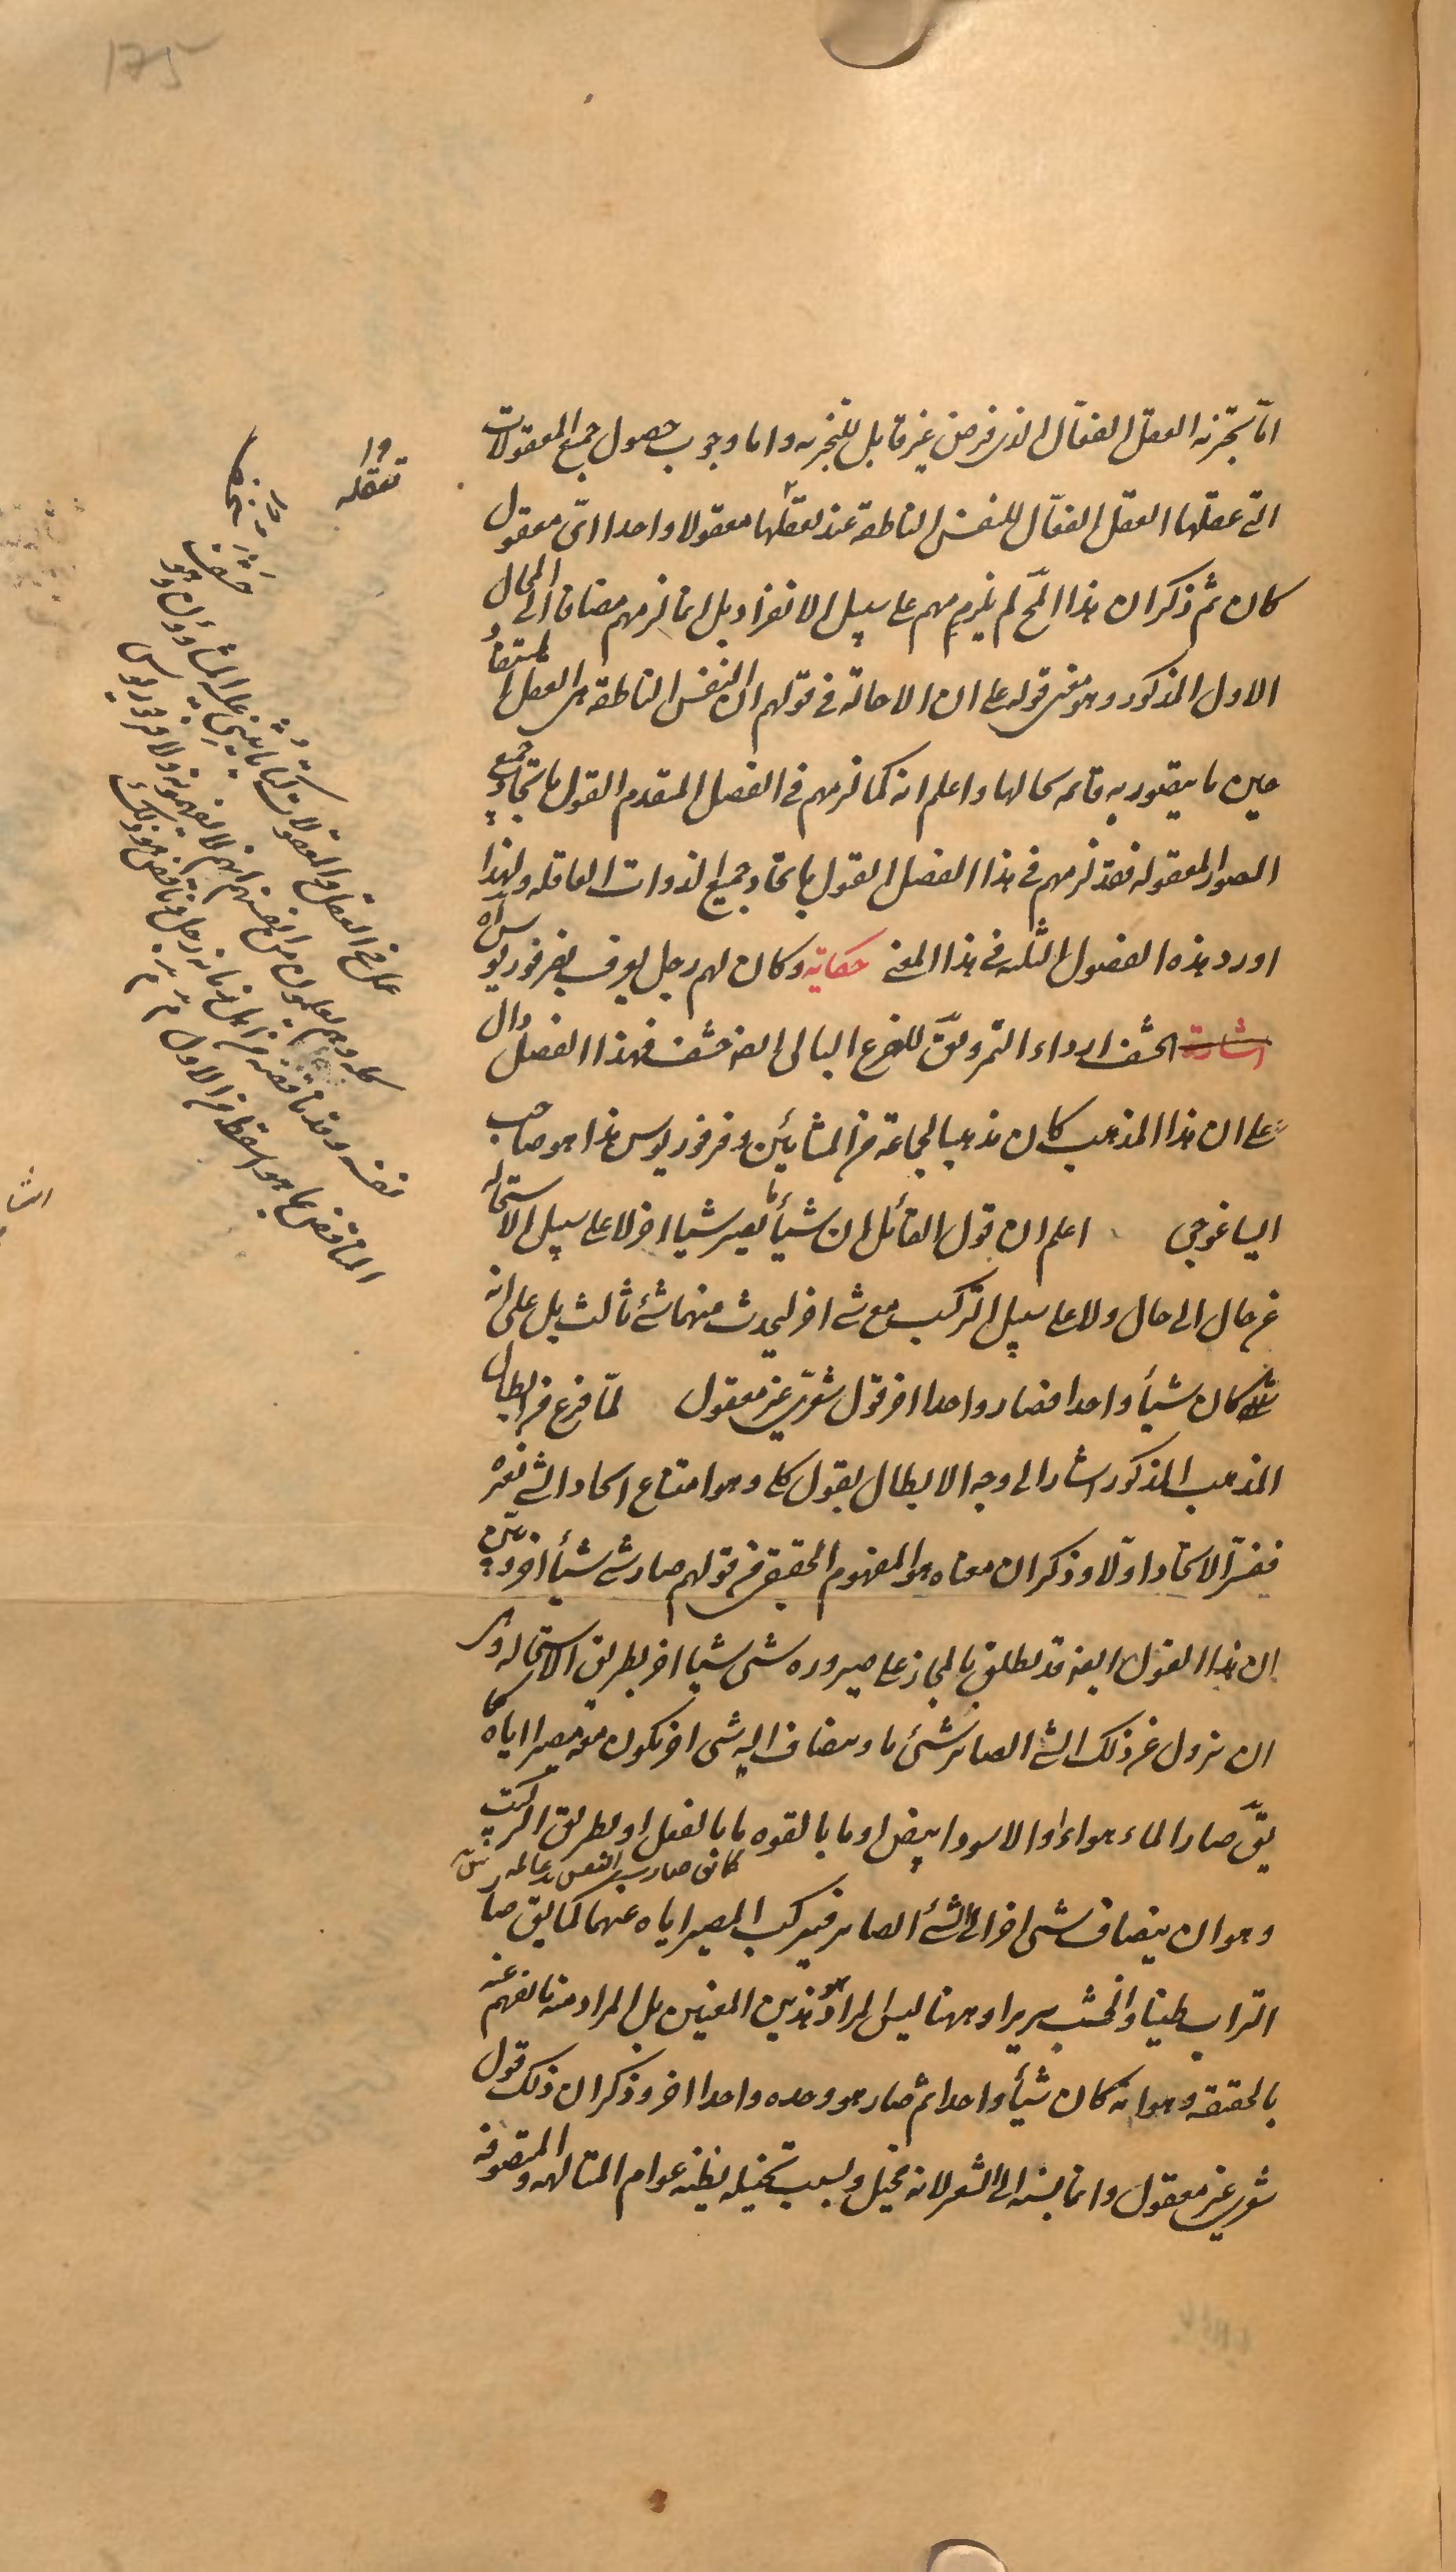 175
اما تجزئه العقل الفعّال الذى فرض غير قابل للتجزيه و اما وجوب حصول جميع المعقولات
التى عقلها العقل الفعّال للنفس الناطقه عند تعقلها معقولا واحدا اىّ معقول
كان ثم ذكر ان هذا المح لم يلزمهم على سبيل الانفراد بل انما لزمهم مضافا الى المحال
الاول المذكور وهو معنى قوله على ان الاحالة فى قولهم ان النفس الناطقه هى العقل المستفاد
حين ما يتصور به قائمه بحالها و اعلم انه كما لزمهم فى الفصل المتقدم القول باتحاد جميع
الصور المعقوله فقد لزمهم فى هذا الفصل القول باتحاد جميع الذوات العاقله ولهذا
اورد هذه الفصول الثلثه فى هذا المعنى حكاية وكان لهم رجل يعرف بفرفوريوس اه
اشارة الحشف ارداء التمر ويقّ للضرع البالى ايضه حشف فهذا الفصل دال
على ان هذا المذهب كان مذهبا لجماعة من المشائين وفرفوريوس هذا هو صاحب
ايساغوجى اعلم ان قول القائل ان شيأ ما يصير شيا اخر لا على سبيل الاستحاله
من حال الى حال ولا على سبيل التركيب مع شى اخر ليحدث منهما شئ ثالث بل على انه
كان شيأ واحدا فصار واحدا اخر قول شعرى غير معقول لمّا فرغ من ابطال
المذهب المذكور اشار الى وجه الابطال بقول كلى وهو امتناع اتحاد الشى بغيره
ففسّر الاتحاد اوّلا وذكر ان معناه هو المفهوم الحقيقى من قولهم صار شى شيأ اخر وبيّن
ان هذا القول ايضه قد يطلق بالمجاز على صيروره شى شيا اخر بطريق الاستحاله وهى
ان يزول عن ذلك الشى الصائر شئ ما ويضاف اليه شى اخر يكون معه مصيرا اياه كما
يقّ صار الماء هواء او الاسود ابيض او ما بالقوه ما بالفعل او بطريق التركيب
وهو ان ينضاف شى اخر الى الشئ الصائر فيتركب المصير اياه عنهما كما يقّ صار
التراب طينا والخشب سريرا وههنا ليس المراد هو هذين المعنيين بل المراد منه ما يفهم عنه
بالحقيقه وهو انه كان شيأ واحدا ثم صار هو وحده واحدا اخر وذكر ان ذلك قول
شعرى غير معقول وانما نسبه الى الشعر لانه مخيّل وبسبب تخيله يظنه عوام المتالهه والمتصوفه
تعقله
عمل فى العقل والمعقولات كتابا يثنى عليه المشاؤون وهو حشف
كله وهم يعلمون من انفسهم انهم لا يفهمونه ولا فرفوريوس
نفسه وقد ناقضه من اهل زمانه رجل وناقض هو ذلك
المناقض بما هو اسقط من الاول